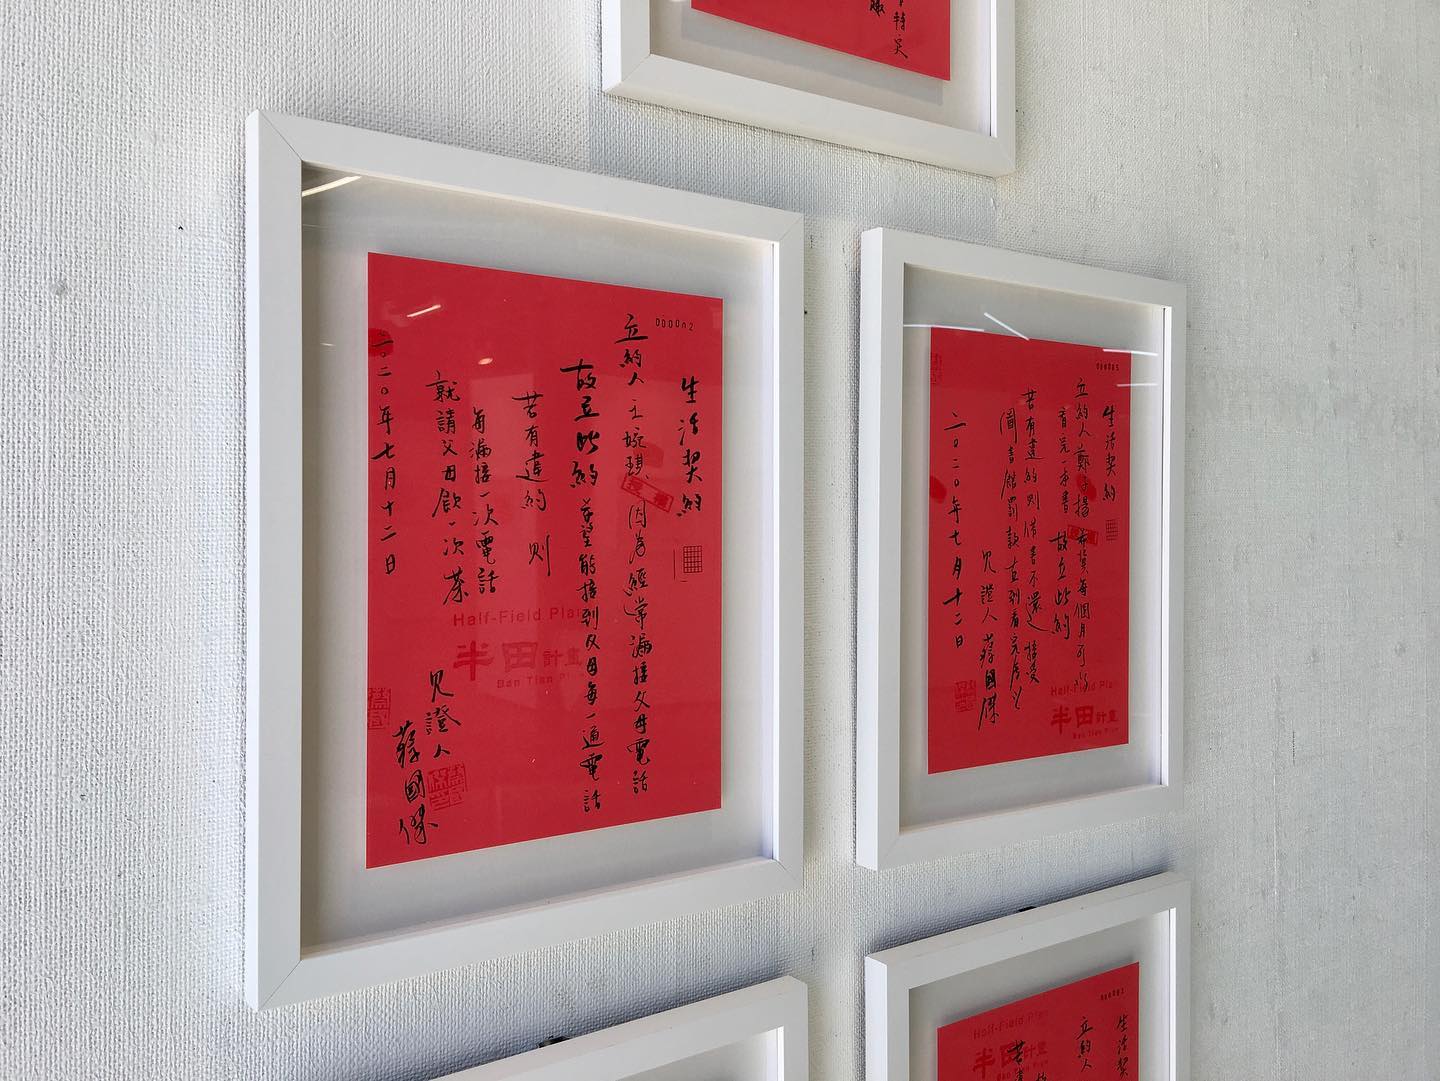 000002
生活契約
立約人王婉琪,因為經常漏接父母電話
故立此約 希望能接到父母每一通電話
若有違約 則
每漏接一次電話
就請父母飲一次茶
二〇二〇年七月十二日
見證人
蔡國傑
Half-Field Plan
半田計畫
Ban Tian Plan
生活契約
立約人鄭子揚 希望每個月可以
看完一本書 故立此約
若有違約則借書不還 接受
圖書館罰款直到看完為止
見證人 蔡國傑
二〇二〇年七月十二日
Half-Field Plan
半田計畫
Ban Tian Plan
特定
Half-Field Plan
半田計畫
Ban Tian Plan
生活契
立約人